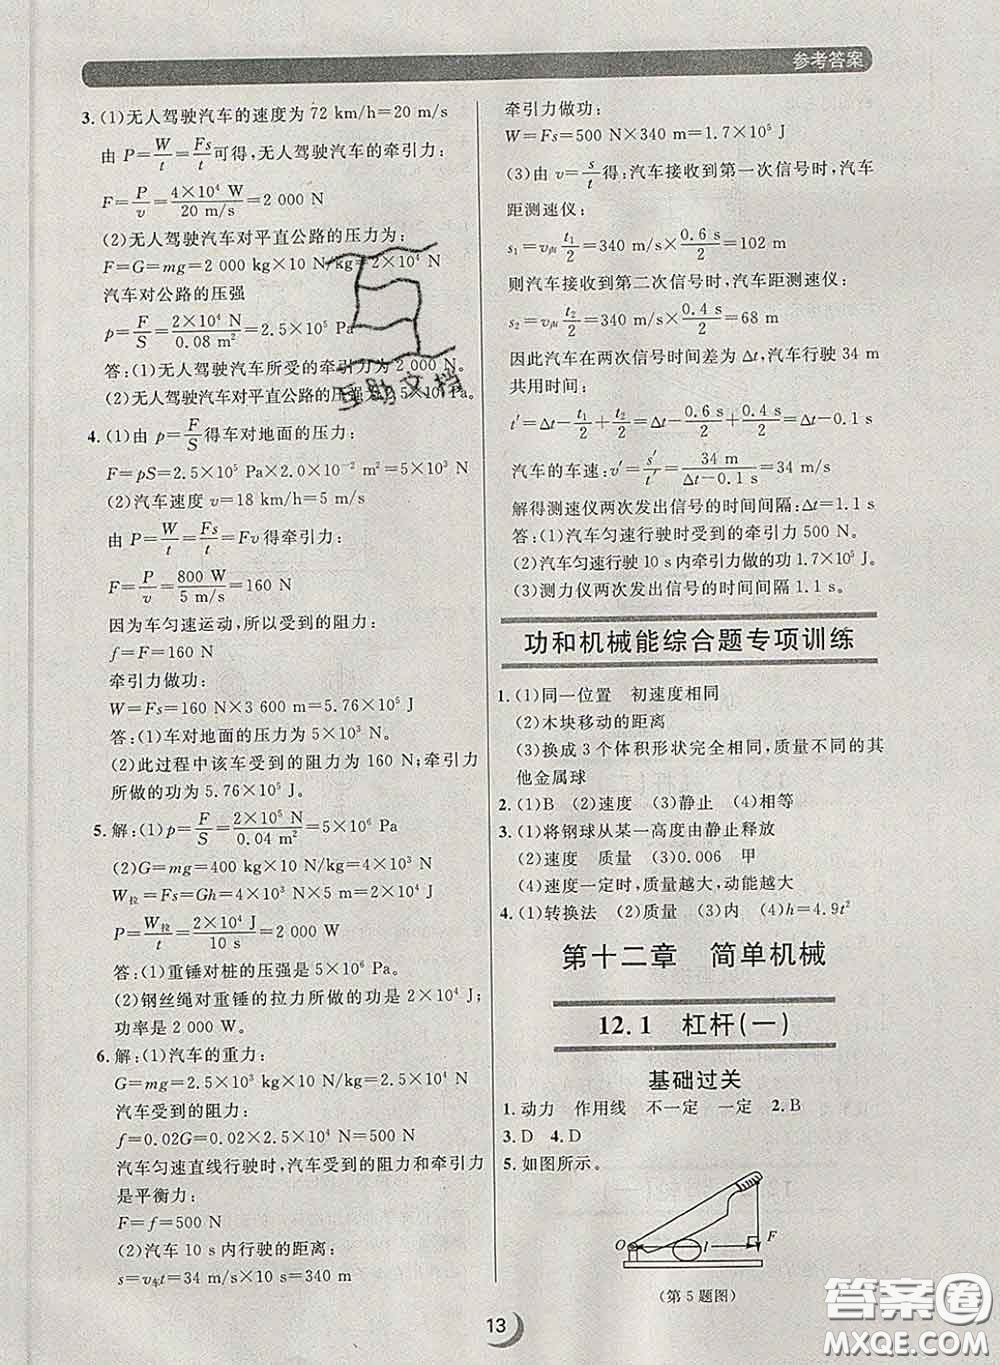 参考答案
3.(1)无人驾驶汽车的速度为 72 km/h=20 m/s
由 P=W/t=Fs/t可得,无人驾驶汽车的牵引力:
F=P/v=4×10⁴ W/20 m/s=2 000 N
(2)无人驾驶汽车对平直公路的压力为:
F=G=mg=2 000 kg×10 N/kg=2×10⁴ N
汽车对公路的压强
p=F/S=2×10⁴ N/0.08 m²=2.5×10⁵ Pa
答:(1)无人驾驶汽车所受的牵引力为 2 000 N。
(2)无人驾驶汽车对平直公路的压强为2.5×10⁵ Pa。
4.(1)由 p=F/S得车对地面的压力:
F=pS=2.5×10⁵ Pa×2.0×10⁻² m²=5×10³ N
(2)汽车速度 v=18 km/h=5 m/s
由 P=W/t=Fs/t=Fv得牵引力:
F=P/v=800 W/5 m/s=160 N
因为车匀速运动,所以受到的阻力:
f=F=160 N
牵引力做功:
W=Fs=160 N×3 600 m=5.76×10⁵ J
答:(1)车对地面的压力为 5×10³ N。
(2)此过程中该车受到的阻力为 160 N;牵引力
所做的功为 5.76×10⁵ J。
5.解:(1)p=F/S=2×10⁵ N/0.04 m²=5×10⁶ Pa
(2)G=mg=400 kg×10 N/kg=4×10³ N
W拉=Fs=Gh=4×10³ N×5 m=2×10⁴ J
P=W拉/t=2×10⁴ J/10 s=2 000 W
答:(1)重锤对桩的压强是 5×10⁶ Pa。
(2)钢丝绳对重锤的拉力所做的功是 2×10⁴ J;
功率是 2 000 W。
6.解:(1)汽车的重力:
G=mg=2.5×10³ kg×10 N/kg=2.5×10⁴ N
汽车受到的阻力:
f=0.02G=0.02×2.5×10⁴ N=500 N
汽车匀速直线行驶时,汽车受到的阻力和牵引力
是平衡力:
F=f=500 N
(2)汽车 10 s内行驶的距离:
s=v车t=34 m/s×10 s=340 m
牵引力做功:
W=Fs=500 N×340 m=1.7×10⁵ J
(3)由 v=s/t得:汽车接收到第一次信号时,汽车
距测速仪:
s₁=v声t₁/2=340 m/s×0.6 s/2=102 m
则汽车接收到第二次信号时,汽车距测速仪:
s₂=v声t₂/2=340 m/s×0.4 s/2=68 m
因此汽车在两次信号时间差为 Δt,汽车行驶 34 m
共用时间:
t′=Δt-t₁/2+t₂/2=Δt-0.6 s/2+0.4 s/2=Δt-0.1 s
汽车的车速:v′=s′/t′=34 m/Δt-0.1 s=34 m/s
解得测速仪两次发出信号的时间间隔:Δt=1.1 s
答:(1)汽车匀速行驶时受到的牵引力 500 N。
(2)汽车匀速行驶 10 s内牵引力做的功 1.7×10⁵ J。
(3)测力仪两次发出信号的时间间隔 1.1 s。
功和机械能综合题专项训练
1.(1)同一位置 初速度相同
(2)木块移动的距离
(3)换成 3 个体积形状完全相同,质量不同的其
他金属球
2.(1)B (2)速度 (3)静止 (4)相等
3.(1)将钢球从某一高度由静止释放
(2)速度 质量 (3)0.006 甲
(4)速度一定时,质量越大,动能越大
4.(1)转换法 (2)质量 (3)内 (4)h=4.9t²
第十二章 简单机械
12.1 杠杆(一)
基础过关
1.动力 作用线 不一定 一定 2.B
3.D 4.D
5.如图所示。
O l F
(第 5 题图)
13
互助文档
答案圈
MXQE.COM